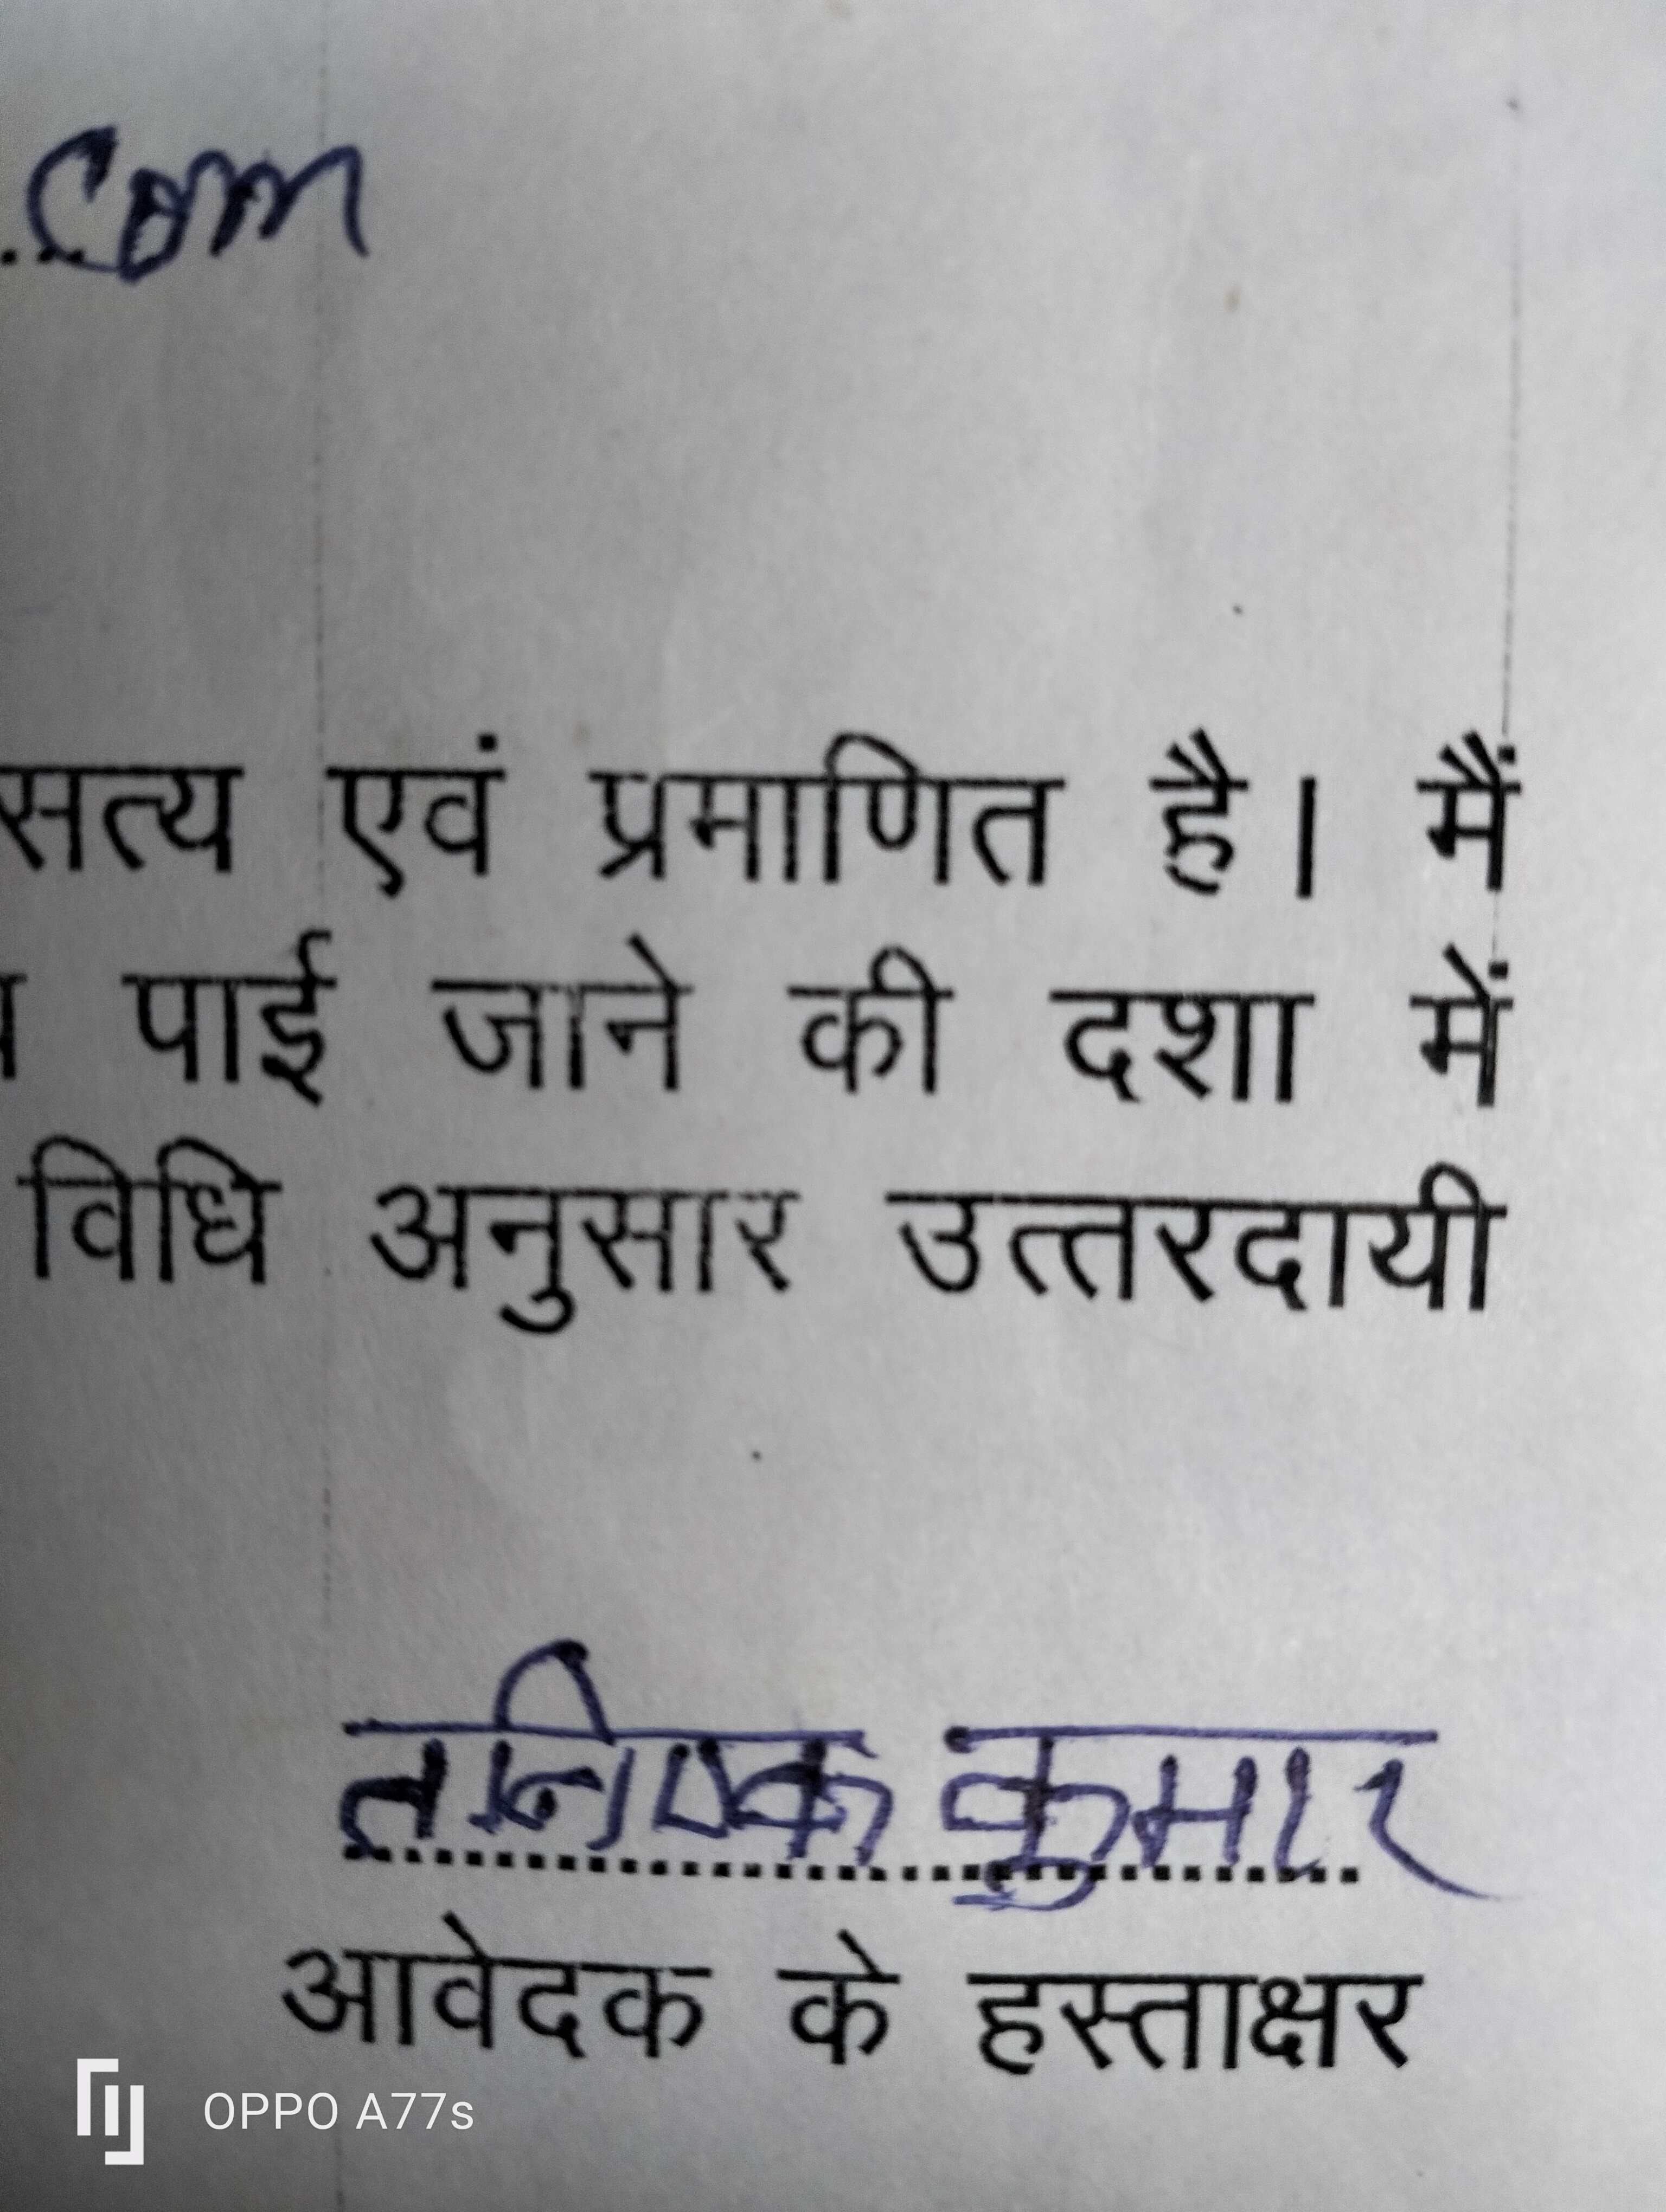 ...com
सत्य एवं प्रमाणित है। मैं
पाई जाने की दशा में
विधि अनुसार उत्तरदायी
तनिष्क कुमार
आवेदक के हस्ताक्षर
OPPO A77s